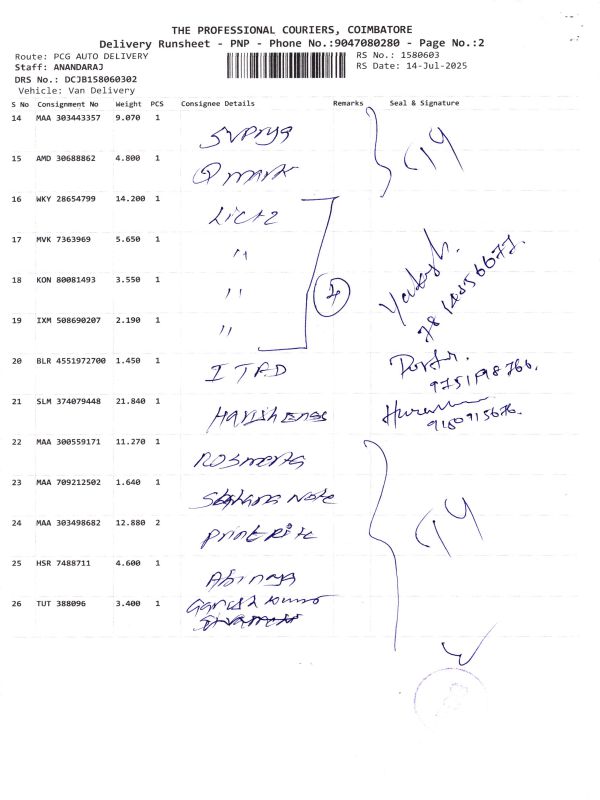 THE PROFESSIONAL COURIERS, COIMBATORE
Delivery Runsheet - PNP - Phone No.:9047080280 - Page No.:2
Route: PCG AUTO DELIVERY RS No.: 1580603
Staff: ANANDARAJ RS Date: 14-Jul-2025
DRS No.: DCJB158060302
Vehicle: Van Delivery
S No Consignment No Weight PCS Consignee Details Remarks Seal & Signature
14 MAA 303443357 9.070 1
15 AMD 30688862 4.800 1 Q mark
16 WKY 28654799 14.200 1
17 MVK 7363969 5.650 1 "
18 KON 80081493 3.550 1 " 4
19 IXM 508690207 2.190 1 "
20 BLR 4551972700 1.450 1
9751198766.
21 SLM 374079448 21.840 1 Harish Engg
9160915676.
22 MAA 300559171 11.270 1
23 MAA 709212502 1.640 1 Note
24 MAA 303498682 12.880 2 Print Rite
25 HSR 7488711 4.600 1 Abinaya
26 TUT 388096 3.400 1